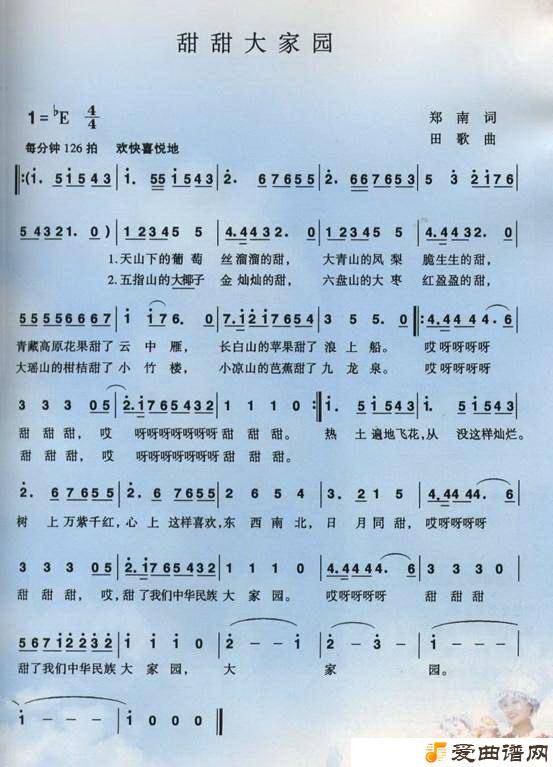 甜甜大家园
1=♭E 4/4
郑南词
田歌曲
每分钟126拍 欢快喜悦地
‖:(i. 51543 | i. 55 151543 | 2. 67655 | 2. 667653 | 5 3 2176
54321. 0) | 12345 5 | 4.4432. 0 | 12345 5 | 4.4432. 0 |
1.天山下的葡萄 丝溜溜的甜, 大青山的凤梨 脆生生的甜,
2.五指山的大椰子 金灿灿的甜, 六盘山的大枣 红盈盈的甜,
55556667 | i i76. 0 | 7.i2i2176 | 3 5 5. 0 :‖: 4.4444. 6 |
青藏高原花果甜了 云中雁, 长白山的苹果甜了 浪上船。 哎呀呀呀呀
大瑶山的柑桔甜了 小竹楼, 小凉山的芭蕉甜了 九龙泉。 哎呀呀呀呀
3 3 3 05 | 2.i765432 | 1 1 1 0 :‖ i. 51543 | i. 51543 |
甜甜甜, 哎 呀呀呀呀呀呀呀 甜甜甜。 热土遍地飞花,从 没这样灿烂。
甜甜甜, 哎 呀呀呀呀呀呀呀 甜甜甜。
2. 67655 | 2. 67655 | 4.4432. 0 | 3. 215 | 4.4444. 6 |
树上万紫千红,心上这样喜欢,东西南北,日月同甜,哎呀呀呀呀
3 3 3 05 | 2.i765432 | 1 1 1 0 | 4.4444. 6 | 3 3 3 0 |
甜甜甜, 哎,甜了我们中华民族 大家园。 哎呀呀呀呀 甜甜甜
56712232 | 2 2 i 0 | 2 - - i | 2 - 3 - | i - - - |
甜了我们中华民族 大家园, 大 家 园。
i - - - | i 0 0 0 ‖
爱曲谱网